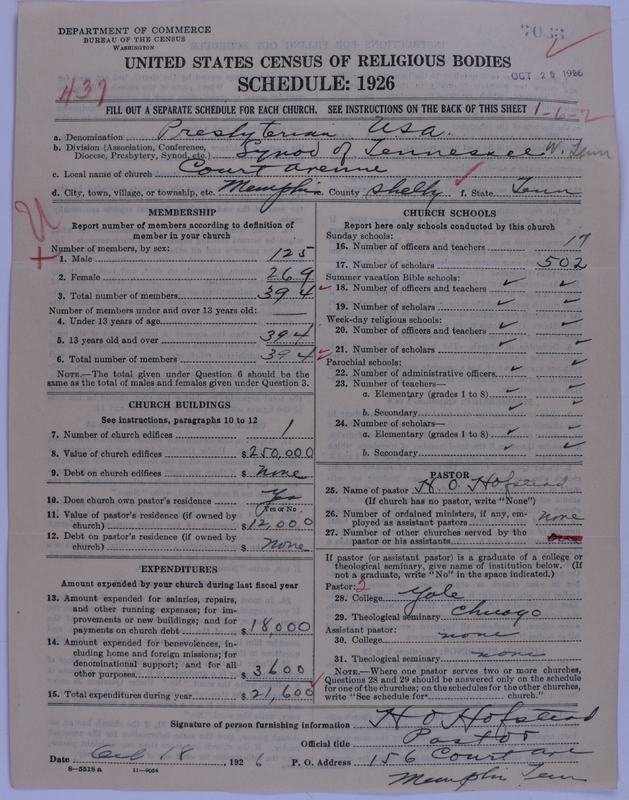 DEPARTMENT OF COMMERCE
BUREAU OF THE CENSUS
WASHINGTON
7033
UNITED STATES CENSUS OF RELIGIOUS BODIES
SCHEDULE: 1926
OCT 20 1926
437
FILL OUT A SEPARATE SCHEDULE FOR EACH CHURCH. SEE INSTRUCTIONS ON THE BACK OF THIS SHEET 1-6-2
a. Denomination Presbyterian USA.
b. Division (Association, Conference, Diocese, Presbytery, Synod, etc.) Synod of Tennessee W. Tenn
c. Local name of church Court avenue
d. City, town, village, or township, etc. Memphis e. County Shelby f. State Tenn
MEMBERSHIP
Report number of members according to definition of member in your church
Number of members, by sex:
1. Male 125
2. Female 269
3. Total number of members 394
Number of members under and over 13 years old:
4. Under 13 years of age
5. 13 years old and over 394
6. Total number of members 394
NOTE.—The total given under Question 6 should be the same as the total of males and females given under Question 3.
CHURCH BUILDINGS
See instructions, paragraphs 10 to 12
7. Number of church edifices 1
8. Value of church edifices $250,000
9. Debt on church edifices $ none
10. Does church own pastor's residence Yes
(Yes or No)
11. Value of pastor's residence (if owned by church) $12,000
12. Debt on pastor's residence (if owned by church) $ none
EXPENDITURES
Amount expended by your church during last fiscal year
13. Amount expended for salaries, repairs, and other running expenses; for improvements or new buildings; and for payments on church debt $18,000
14. Amount expended for benevolences, including home and foreign missions; for denominational support; and for all other purposes $3600
15. Total expenditures during year $21,600
CHURCH SCHOOLS
Report here only schools conducted by this church
Sunday schools:
16. Number of officers and teachers 17
17. Number of scholars 502
Summer vacation Bible schools:
18. Number of officers and teachers ✓ ✓
19. Number of scholars ✓ ✓
Week-day religious schools:
20. Number of officers and teachers ✓ ✓
21. Number of scholars ✓ ✓
Parochial schools:
22. Number of administrative officers ✓ ✓
23. Number of teachers—
a. Elementary (grades 1 to 8) ✓ ✓
b. Secondary ✓ ✓
24. Number of scholars—
a. Elementary (grades 1 to 8) ✓ ✓
b. Secondary ✓ ✓
PASTOR
25. Name of pastor H. O. Hofstead
(If church has no pastor, write "None")
26. Number of ordained ministers, if any, employed as assistant pastors none
27. Number of other churches served by the pastor or his assistants
If pastor (or assistant pastor) is a graduate of a college or theological seminary, give name of institution below. (If not a graduate, write "No" in the space indicated.)
Pastor: 2
28. College Yale
29. Theological seminary Chicago
Assistant pastor:
30. College none
31. Theological seminary none
NOTE.—Where one pastor serves two or more churches, Questions 28 and 29 should be answered only on the schedule for one of the churches; on the schedules for the other churches, write "See schedule for church."
Signature of person furnishing information H O Hofstead
Official title Pastor
Date Oct 18, 1926 P. O. Address 156 Court ave
Memphis Tenn
8—5518a 11—9054